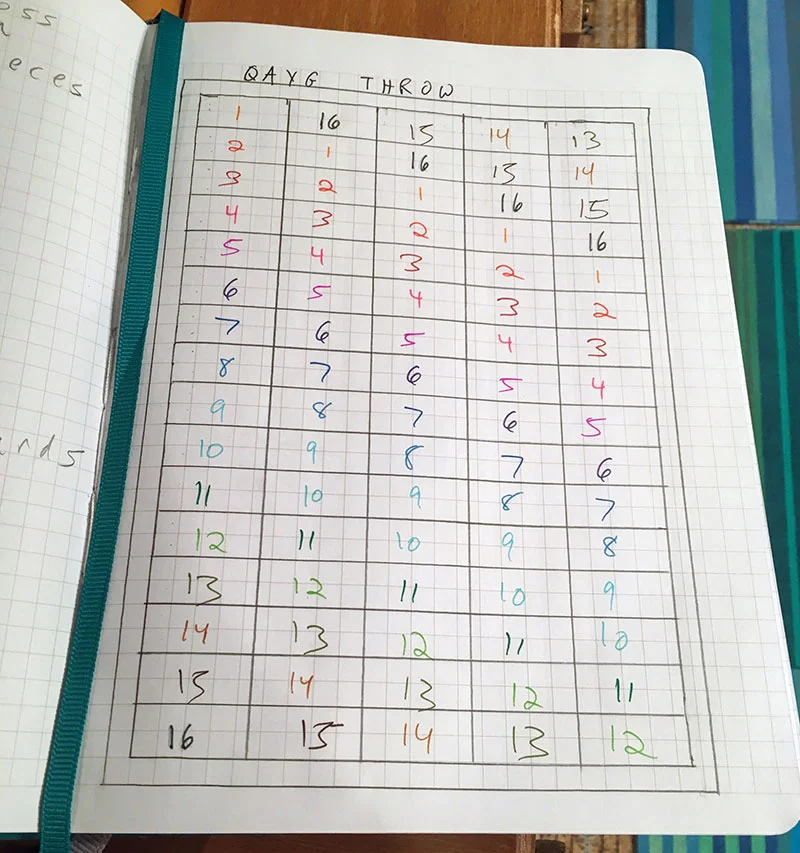 QAYG THROW
1 16 15 14 13
2 1 16 15 14
3 2 1 16 15
4 3 2 1 16
5 4 3 2 1
6 5 4 3 2
7 6 5 4 3
8 7 6 5 4
9 8 7 6 5
10 9 8 7 6
11 10 9 8 7
12 11 10 9 8
13 12 11 10 9
14 13 12 11 10
15 14 13 12 11
16 15 14 13 12
oss
eces
ards